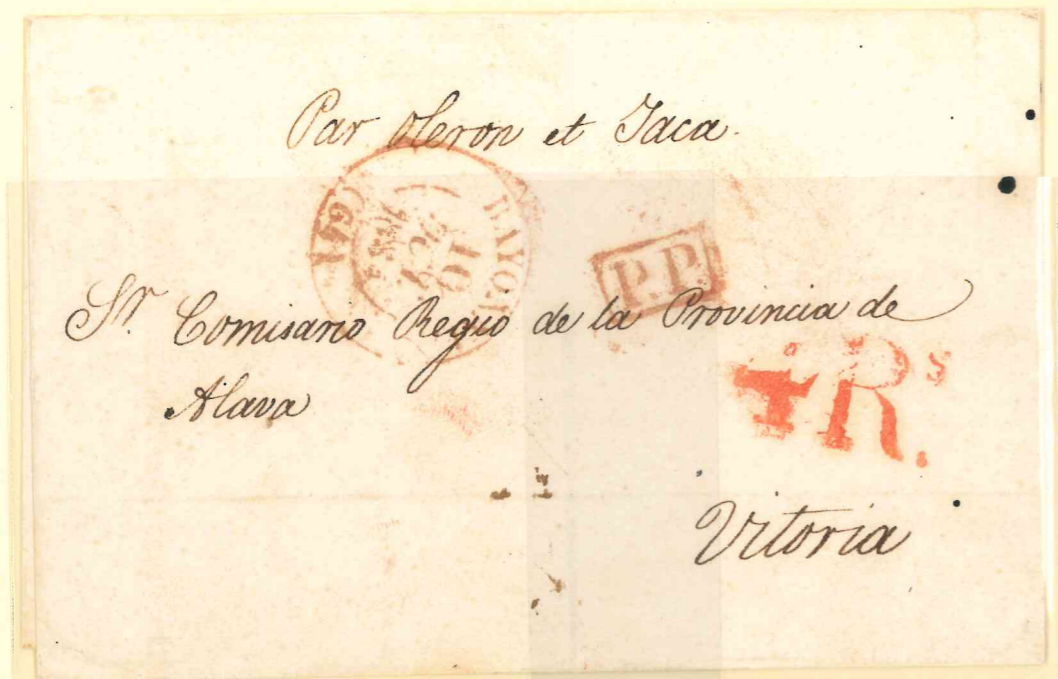 Par oleron et Jaca.
BAYON
10
P.P.
Sr. Comisario Regio de la Provincia de
Alava
4Rs.
Vitoria